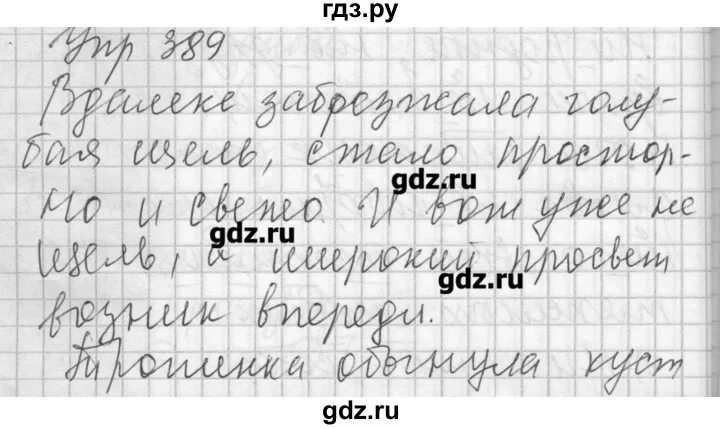 гдз.ру
Упр 389
Вдалеке забрезжала голу-
бая щель, стало простор-
gdz.ru
но и свежо. И вот уже не
gdz.ru
щель, а широкий просвет
gdz.ru
возник впереди.
Тропинка обогнула куст
gdz.ru